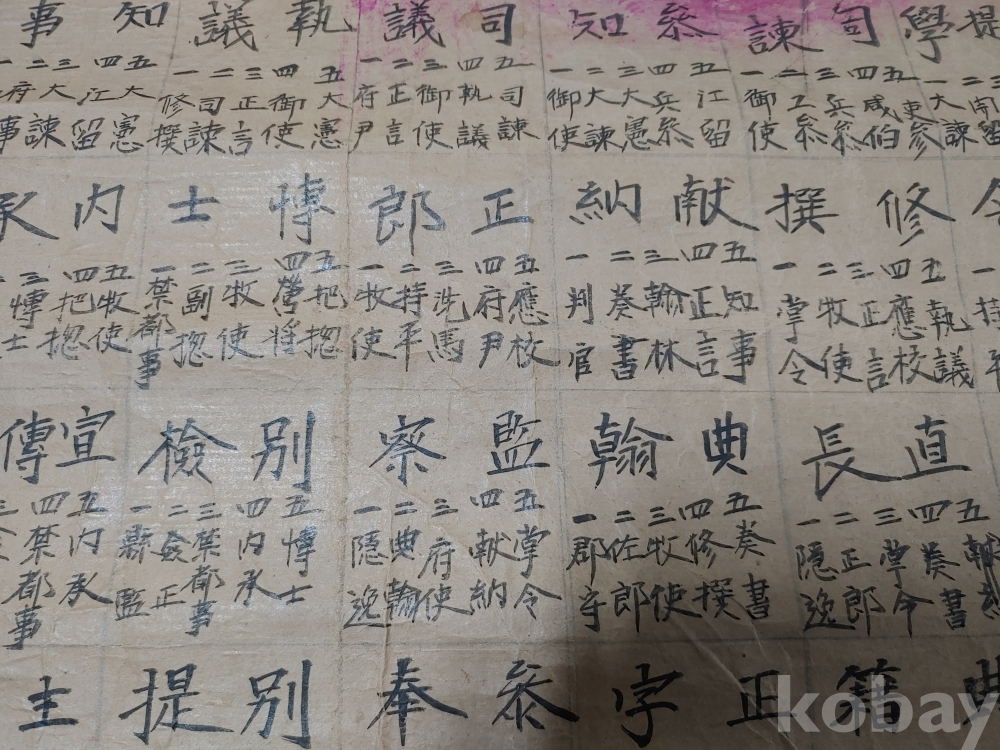 提學
一大諫
二開留
司諫
一御使
二工叅
三兵叅
四咸伯
五吏參
叅知
一御使
二大諫
三大憲
四兵叅
五江留
司議
一府尹
二正言
三御使
四執議
五司諫
執議
一修撰
二司諫
三正言
四御使
五大憲
知事
二府事
三大諫
四江留
五大憲
令
一持平
修撰
一掌令
二牧使
三正言
四應校
五執議
献納
一判官
二奏書
三翰林
四正言
五知事
正郎
一牧使
二持平
三洗馬
四府尹
五應校
博士
一禁都事
二副摠
三牧使
四營將
五把摠
內承
三博士
四把摠
五牧使
直長
一隠逸
二正郎
三掌令
四奏書
五献
典翰
一郡守
二佐郎
三牧使
四修撰
五奏書
監察
一隠逸
二典翰
三府使
四献納
五掌令
別檢
一監
二僉正
三禁都事
四內承
五博士
宣傳
四禁都事
五內承
典籍
正字
叅奉
別提
主
kobay